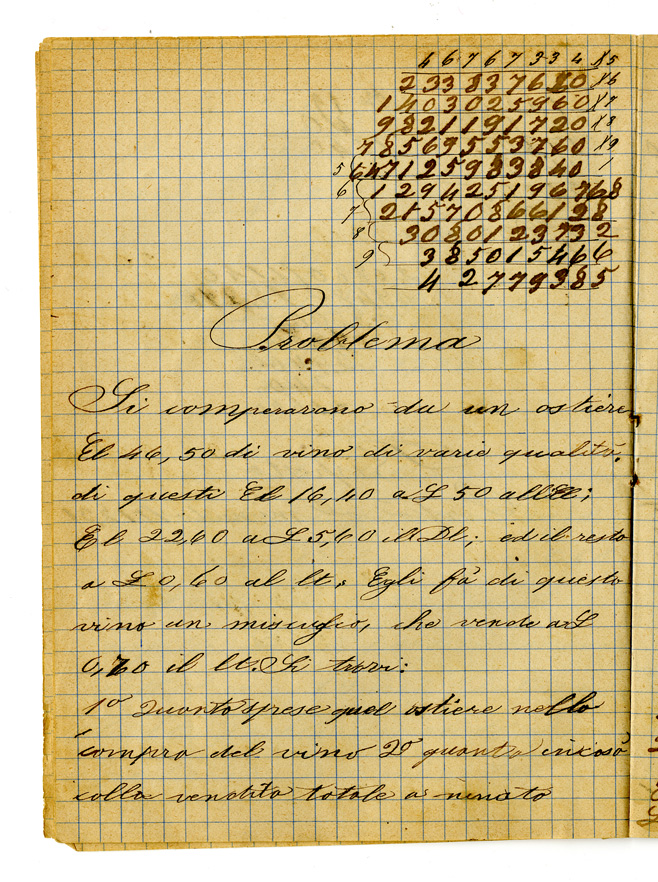 4 6 7 6 7 3 3 4 X5
2 3 3 8 3 7 6 6 0 X6
1 4 0 3 0 2 5 9 6 0 X7
9 8 2 1 1 9 1 7 2 0 X8
7 8 5 6 9 5 5 3 7 6 0 X9
5 647125983840
6 129425196768
7 21570866128
8 3080123732
9 385015466
42779385
Problema
Si comperarono da un ostiere
El 46,50 di vino di varie qualità.
di questi El 16,40 a £ 50 all El;
El 22,60 a £ 5,60 il Dl; ed il resto
a £ 0,60 al lt. Egli fà di questo
vino un miscuglio, che vende a £
0,70 il lt. Si trovi:
1º Quanto spese quel ostiere nella
compra del vino 2º quanto incasò
colla vendita totale a minuto